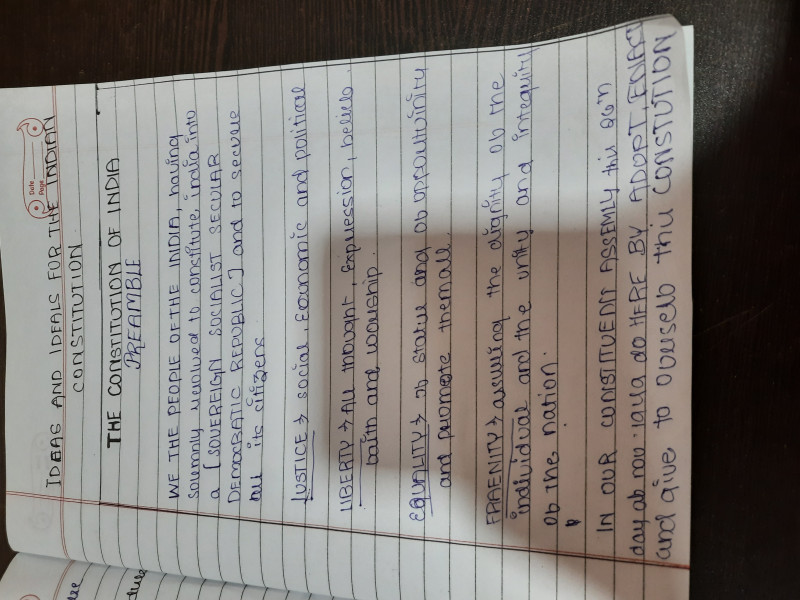 Date
Page
IDEAS AND IDEALS FOR THE INDIAN
CONSTITUTION
THE CONSTITUTION OF INDIA
PREAMBLE
WE THE PEOPLE OF THE INDIA, having
solemnly resolved to constitute, india into
a [SOVEREIGN SOCIALIST SECULAR
DEMOCRATIC REPUBLIC] and to secure
all its citizens
JUSTICE → social, Economic and political
LIBERTY → All thought, Expression, beliefs
faith and worship.
EQUALITY → Of status and of oppourtuinity
and promote themall.
FRAENITY → assuring the dignity of the
individual and the unity and intequity
of the nation.
IN OUR CONSTITUENT ASSEMLY this
day of nov do HERE BY ADOPT, ENACT
and give to ourself this CONSTUTION